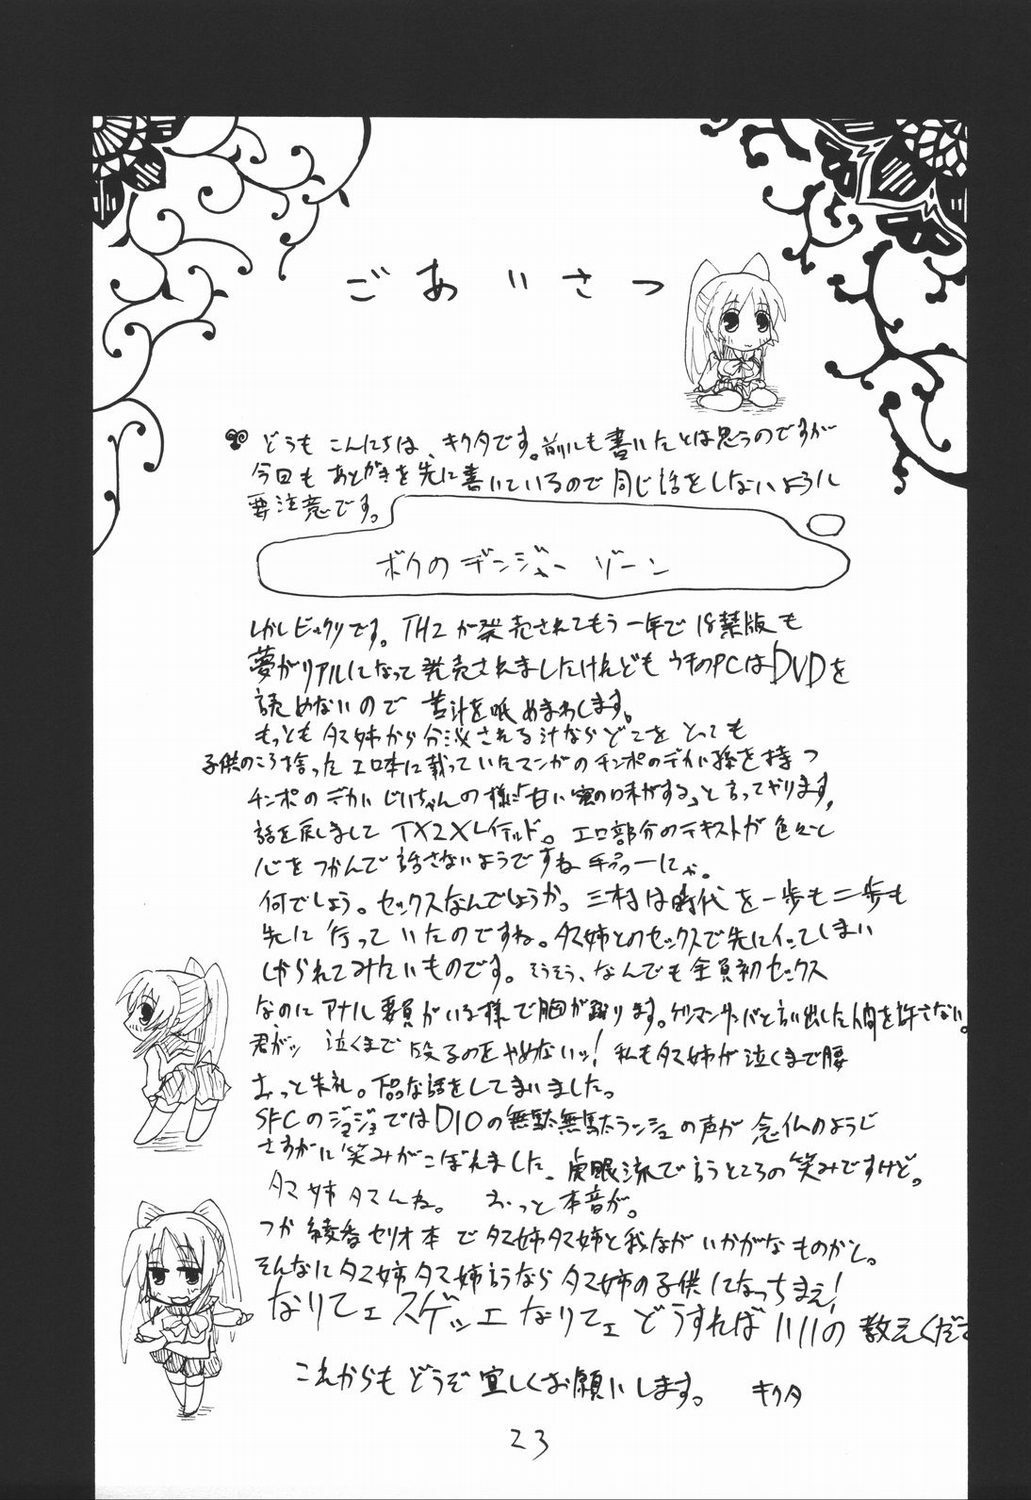 ごあいさつ
どうもこんにちは、キクタです。前にも書いたとは思うのですが
今回もあとがきを先に書いているので同じ話をしないように
要注意です。
ボクのデンジャーゾーン
しかしビックリです。TH2が発売されてもう一年で18禁版も
夢がリアルになって発売されましたけれどもウチのPCはDVDを
読めないので苦汁を舐めまわします。
もっともタマ姉から分泌される汁ならどこをとっても
子供のころ拾ったエロ本に載っていたマンガのチンポのデカい孫を持つ
チンポのデカいじいちゃんの様に「甘い蜜の味がする」と言ってやります。
話を戻しましてTX2Xレイテッド。エロ部分のテキストが色々と
心をつかんで話さないようですね
何でしょう。セックスなんでしょうか。三村は時代を一歩も二歩も
先に行っていたのですね。タマ姉とのセックスで先にイッてしまい
しかられてみたいものです。そうそう、なんでも全員初セックス
なのにアナル要員がいる様で胸が踊ります。ゲリマンサーバと言い出した人間を許さない。
君がッ 泣くまで殴るのをやめないッ!私もタマ姉が泣くまで腰
おっと失礼。下品な話をしてしまいました。
SFCのジョジョではDIOの無駄無駄ランシュの声が念仏のようじ
さすがに笑みがこぼれました、虎眼流で言うところの笑みですけど。
タマ姉タマんね。 おっと本音が。
つか綾香セリオ本でタマ姉タマ姉と我ながいかがなものかと。
そんなにタマ姉タマ姉言うならタマ姉の子供になっちまえ!
なりてェスゲッエなりてェどうすればいいの教えくださ
これからもどうぞ宜しくお願いします。 キクタ
23